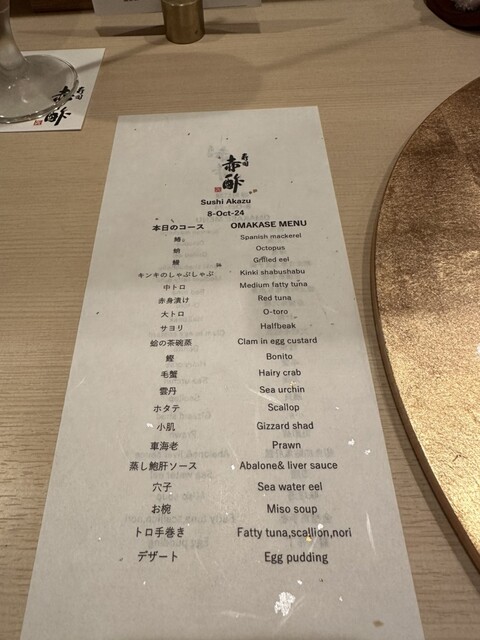 寿司
赤酢
寿司
赤酢
Sushi Akazu
8-Oct-24
本日のコース OMAKASE MENU
鰆 Spanish mackerel
蛸 Octopus
鰻 Grilled eel
キンキのしゃぶしゃぶ Kinki shabushabu
中トロ Medium fatty tuna
赤身漬け Red tuna
大トロ O-toro
サヨリ Halfbeak
蛤の茶碗蒸 Clam in egg custard
鰹 Bonito
毛蟹 Hairy crab
雲丹 Sea urchin
ホタテ Scallop
小肌 Gizzard shad
車海老 Prawn
蒸し鮑肝ソース Abalone& liver sauce
穴子 Sea water eel
お椀 Miso soup
トロ手巻き Fatty tuna,scallion,nori
デザート Egg pudding